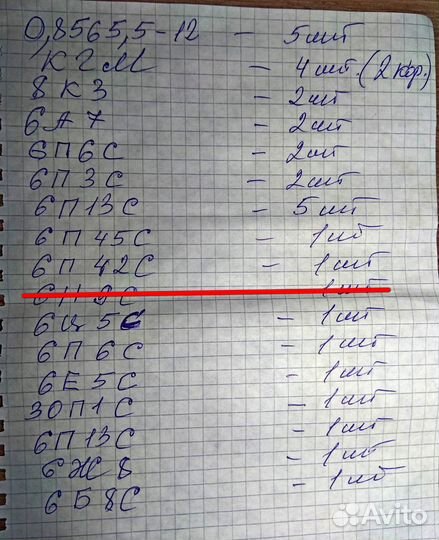 0,8565,5-12 - 5шт
1КГМ - 4шт. (2 кор.)
8К3 - 2шт
6А7 - 2шт
6П6С - 2шт
6П3С - 2шт
6П13С - 5шт
6П45С - 1шт
6П42С - 1шт
1шт
6Ц5С - 1шт
6П6С - 1шт
6Е5С - 1шт
30П1С - 1шт
6П13С - 1шт
6Ж8 - 1шт
6Б8С - 1шт
Avito